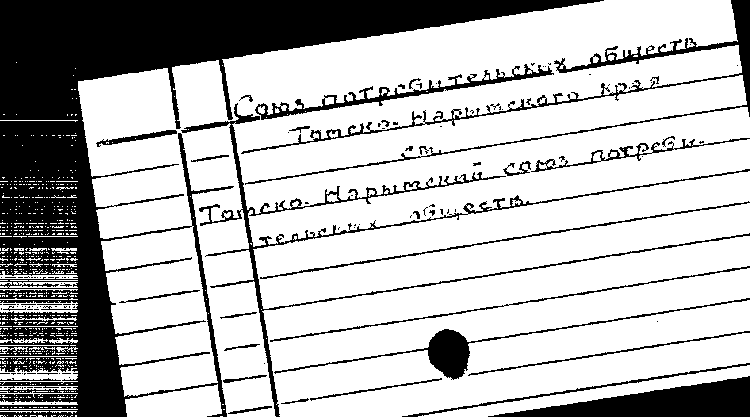 Союз потребительских обществ
Томско-Нарымского края
см.
Томско-Нарымский союз потреби-
тельских обществ.